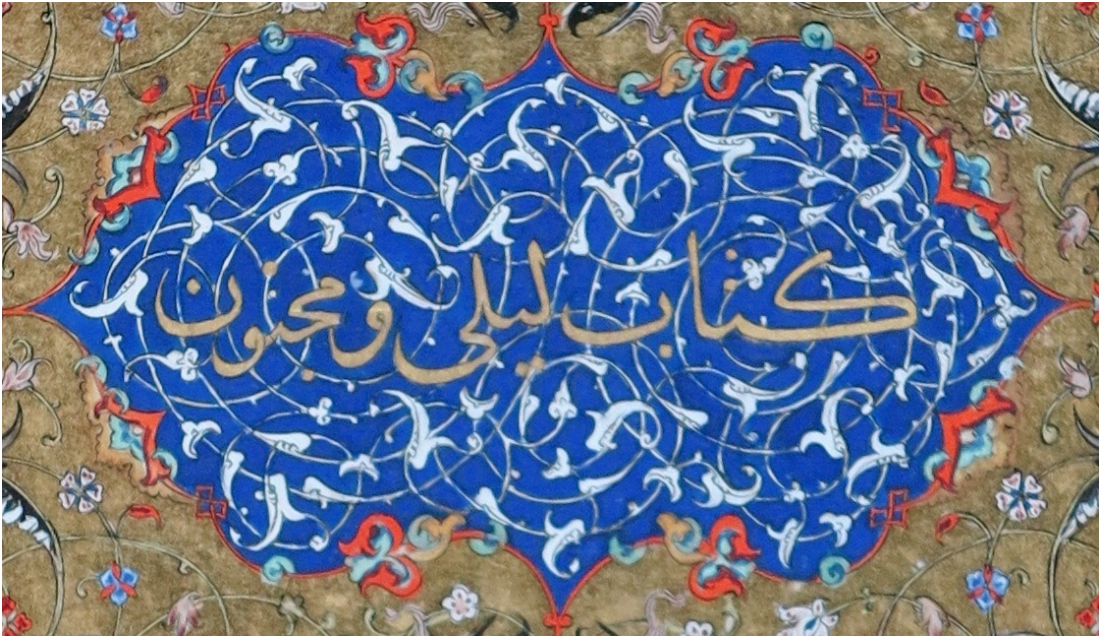 کتاب لیلی و مجنون